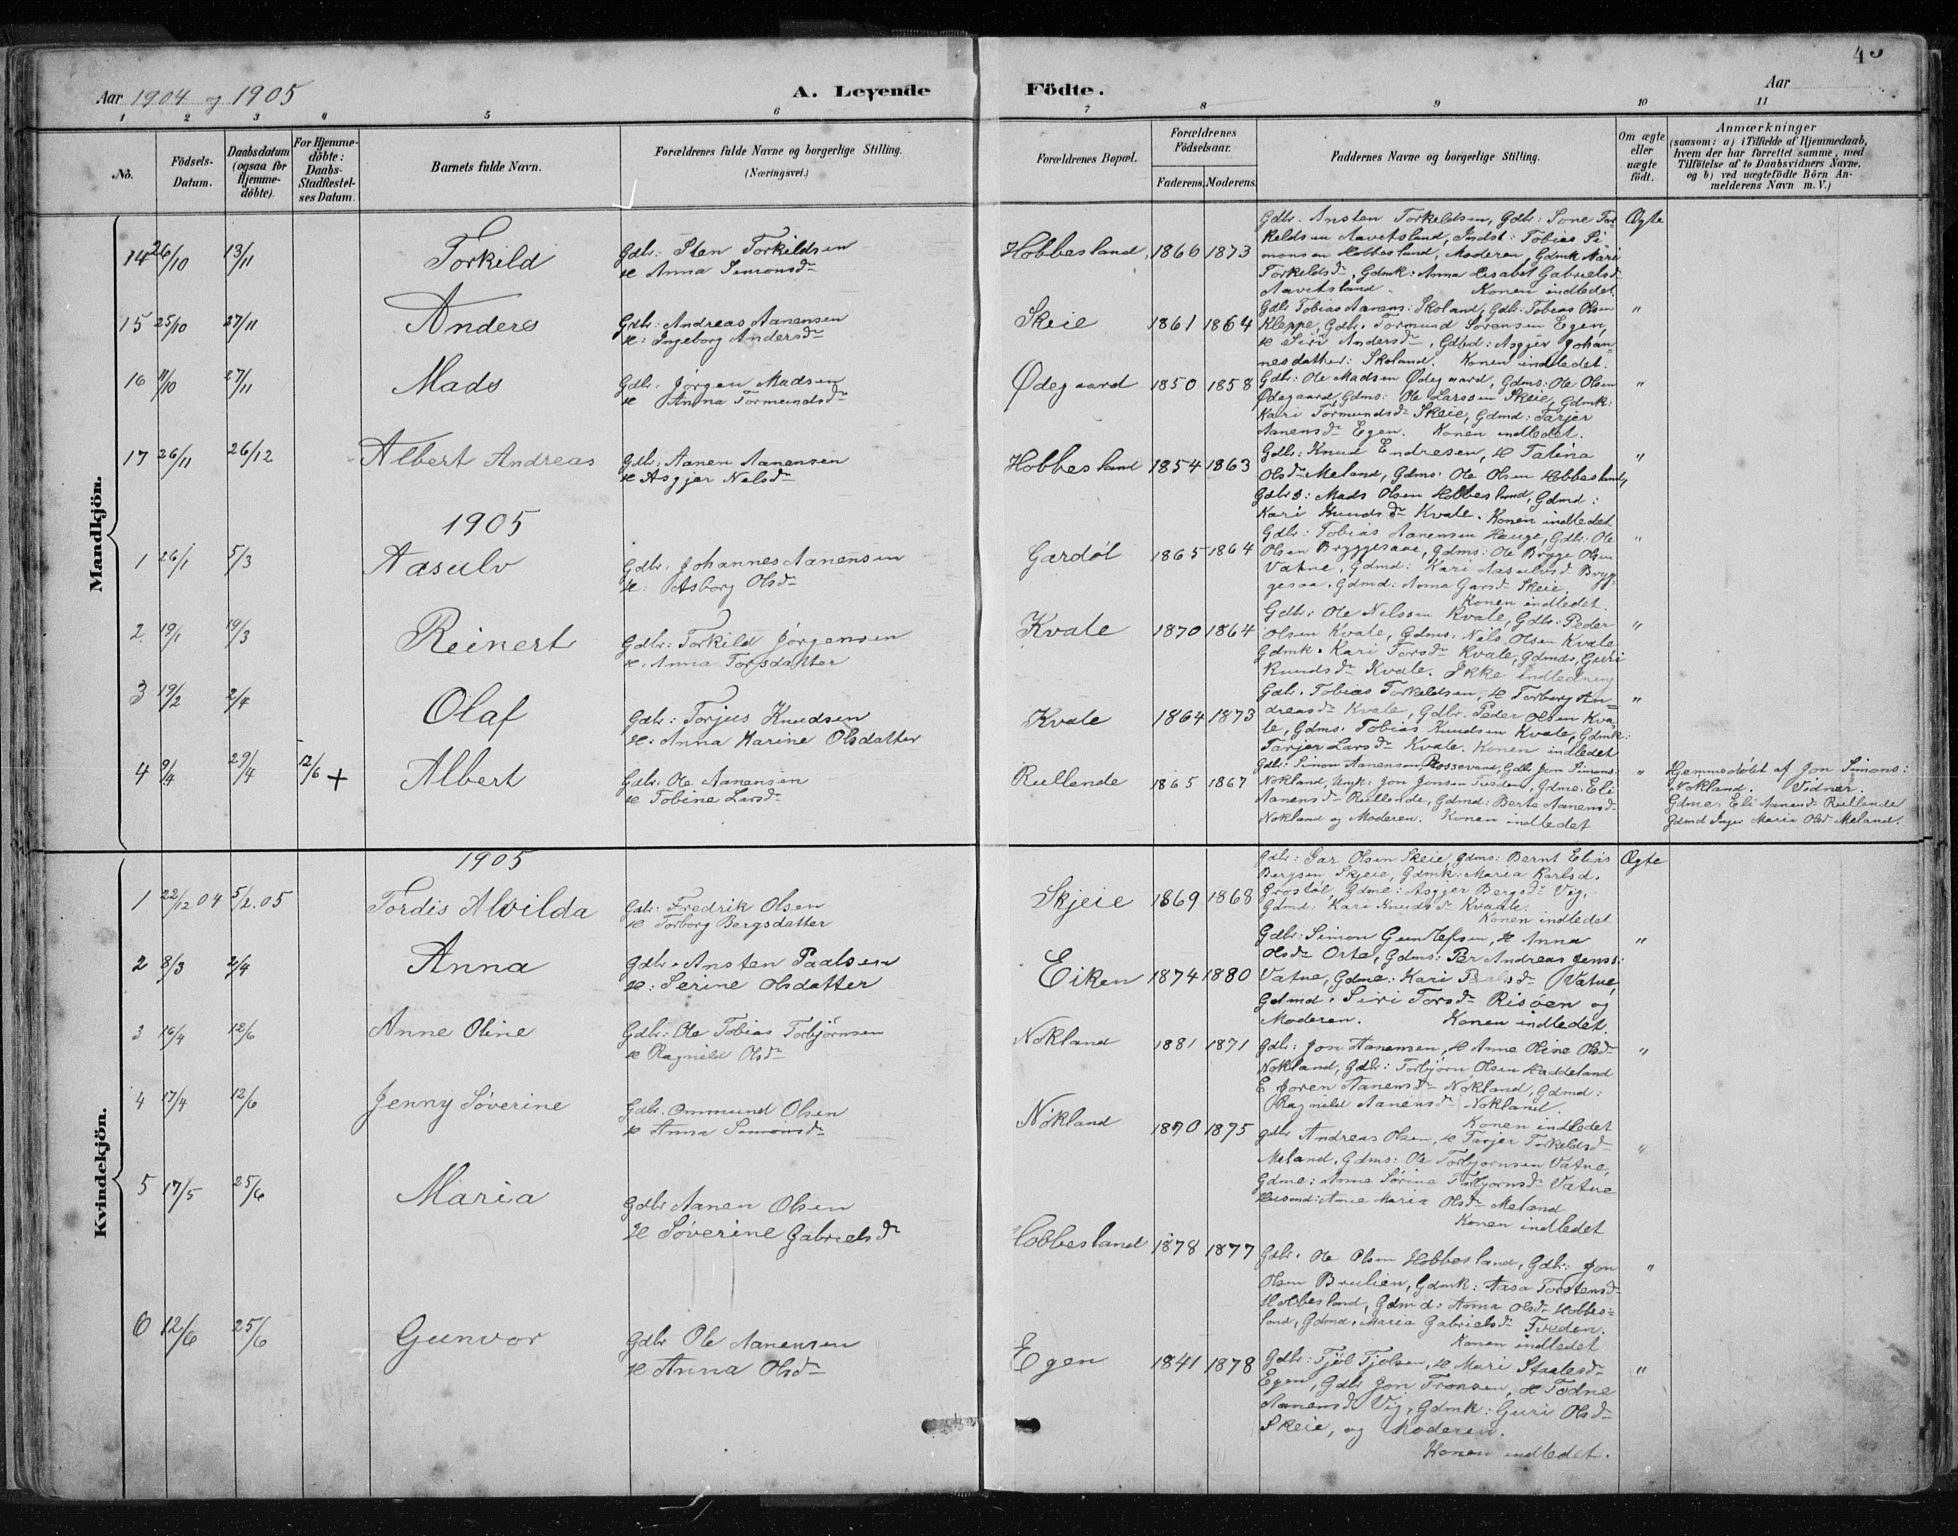 Aar 1904 og 1905
A. Levende Födte.
Aar
45
1 2 3 4 5 6 7 8 9 10 11
No.
Födsels-Datum.
Daabsdatum (ogsaa for Hjemme-döbte).
For Hjemme-döbte: Daabs-Stadfæstel-ses Datum.
Barnets fulde Navn.
Forældrenes fulde Navne og borgerlige Stilling. (Næringsvei.)
Forældrenes Bopæl.
Forældrenes Födselsaar.
Faderens. Moderens.
Faddernes Navne og borgerlige Stilling.
Om ægte eller uægte födt.
Anmærkninger
(saasom: a) i Tilfælde af Hjemmedaab,
hvem der har forrettet samme, med
Tilföielse af to Daabsvidners Navne,
og b) ved uægtefödte Börn An-
melderens Navn m. V.)
Mandkjön.
14 26/10 13/11 Torkild
Gdbr. Sten Torkildsen
H Anna Simonsdr
Hobbesland, 1866 1873
Gdbr. Ansten Torkeldsen, Gdbr: Tone Tor-
keldsen Aavitsland, Indst: Tobias Si-
monsen Hobbesland, Moderen, Gdmk Mari
Torkeldsdr, Gdmk: Anna Lisabet Gabrielsd
Aavitsland. Konen indledet.
Ægte
15 25/10 27/11 Anders
Gdbr: Andreas Aanensen
H: Ingeborg Andersdr
Skeie 1861 1864
Gdbr Tobias Aanens: Skoland, Gdbr: Tobias Olsen
Kleppe, Gdbr. Tormund Sørensen Egen,
H Siri Andersdr, Gdbd: Asgjer Johan-
nesdatter: Skoland. Konen indledet.
"
16 11/10 27/11 Mads
Gdbr: Jörgen Madsen
H Anna Tormundsdr
Ødegaard 1850 1858
Gdbr: Ole Madsen Ødegaard, Gdms: Ole Olsen
Ødegaard, Gdms: Ole Larssen Skeie, Gdmk:
Kari Tormundsdr Skeie, Gdmd: Tarjer
Aanensdr Egen. Konen indledet.
"
17 26/11 26/12 Albert Andreas
Gdbr: Aanen Aanensen
H Asgjer Nelsdr
Hobbesland 1854 1863
Gdbr: Knud Endresen, H Talina
Olsdr Meland, Gdms: Ole Olsen Hobbesland,
Gdbrs: Mads Olsen Hobbesland, Gdmd:
Kari Knudsdr Kvale. Konen indledet
"
1905
1 26/1 5/3 Aasulv
Gdbr. Johannes Aanensen
H: Asborg Olsdr
Gardöl 1865 1864
Gdbr: Tobias Aanensen Hauge, Gdbr: Ole
Olsen Bryggesaae, Gdms: Ole Brygge Olsen
Vatne, Gdmd: Kari Aasulvsd Bryg-
gesaa, Gdmd: Anna Garsdr Skeie.
Konen indledet.
"
2. 19/1 19/3 Reinert
Gdbr: Torkild Jörgensen
H: Anna Torsdatter
Kvale 1870 1864
Gdbr: Ole Nelssen Kvale, Gdbr: Peder
Olsen Kvale, Gdms: Nels Olsen Kvale
Gdmk. Kari Torsdr Kvale, Gdmds, Guri
Knudsdr Kvale. Ikke indledning
"
3 19/2 2/4 Olaf
Gdbr: Torjus Knudsen
H: Anna Karine Olsdatter
Kvale 1864 1873
Gdbr. Tobias Torkildsen, H Torborg An-
dreasdr Kvale, Gdbr. Peder Olsen Kva-
le, Gdms. Tobias Knudsen Kvale, Gdmk:
Tarjer Larsdr Kvale. Konen indledet
"
4 9/4 29/4 12/6 + Albert
Gdbr: Ole Aanensen
H Tobine Larsdr
Rullende 1865 1867
Gdbr: Simon Aanensen Rossevand, Gdbr Jon Simons:
Nokland, Umk: Jon Jonsen Tveden, Gdme: Eli
Aanensdr Rullende, Gdmd: Berte Aanensdr
Nokland og Moderen. Konen indledet
"
Hjemmedöbt af Jon Simons:
Nokland. Vidner.
Gdme. Eli Aanensdr Rullende
Gdmd Inger Maria Olsdr Meland.
Kvindekjön.
1905
1 22/12 04 5/2. 05 Tordis Alvilda
Gdbr: Fredrik Olsen
H Torborg Bergsdatter
Skjeie 1869 1868
Gdbr: Gar Olsen Skeie, Gdms: Bernt Elias
Bergsen Skjeie, Gdmk: Maria Karlsd.
Grostöl, Gdme: Asgjer Bergsdr Vig,
Gdmd: Kari Knudsdr Kvaale.
Konen indledet
Ægte
2 8/3 2/4 Anna
Gdbr. Ansten Paalsen
H: Serine Olsdatter
Eiken 1874 1880
Gdbr: Simon Gundlefsen, H Anna
Olsdr Orte, Gdms: Per Andreas Jenss:
Vatne, Gdme: Kari Paalsdr Vatne,
Gdmd. Siri Torsdr Risöen og
Moderen. Konen indledet.
"
3 16/4 12/6 Anne Oline
Gdbr: Ole Tobias Torbjörnsen
H Ragnild Olsdr
Nokland 1881 1871
Gdbr: Jon Aanensen, H Anne Oline Olsdr
Nokland, Gdbr: Torbjörn Olsen Haddeland
E Joren Aanensdr Nokland, Gdmd:
Ragnild Aanensdr Nokland.
Konen indledet
"
4 17/4 12/6 Jenny Söverine
Gdbr. Ommund Olsen
H Anna Simonsdr
Nökland 1870 1875
Gdbr Andreas Olsen, H Tarjer Torkildsdr
Meland, Gdms: Ole Torbjornsen Vatne,
Gdme: Anne Sörine Torbjornsdr Vatne
Husmd: Anne Maria Olsdr Meland
Konen indledet
"
5 17/5 25/6 Maria
Gdbr Aanen Olsen
H Söverine Gabrielsdr
Hobbesland 1878 1877
Gdbr. Ole Olsen Hobbesland, Gdbr: Jon
Olsen Brulien, Gdmk: Aasa Torstensdr
Hobbesland, Gdmd: Anna Olsdr Hobbes-
land, Gdmd. Maria Gabrielsdr Tveden.
Konen indledet
"
6 12/6 25/6 Gunvor
Gdbr Ole Aanensen
H Anna Olsdr
Egen 1841 1878
Gdbr: Tjöl Tjolsen, H Mari Staalesdr
Egen, Gdbr Jon Tronsen, H Todne
Aanensdr Vig, Gdmk: Guri Olsdr
Skeie, og Moderen.
Konen indledet.
"